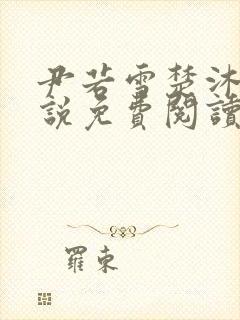 尹若雪楚沐
說免費閱讀
羅東